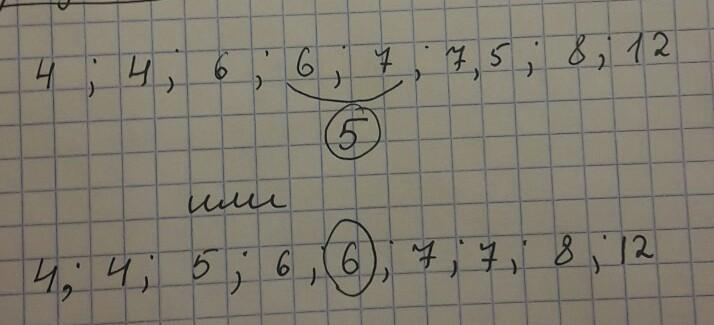 4 ; 4 ; 6 ; 6 ; 7 ; 7,5 ; 8 ; 12
5
или
4; 4; 5; 6, 6; 7; 7; 8; 12